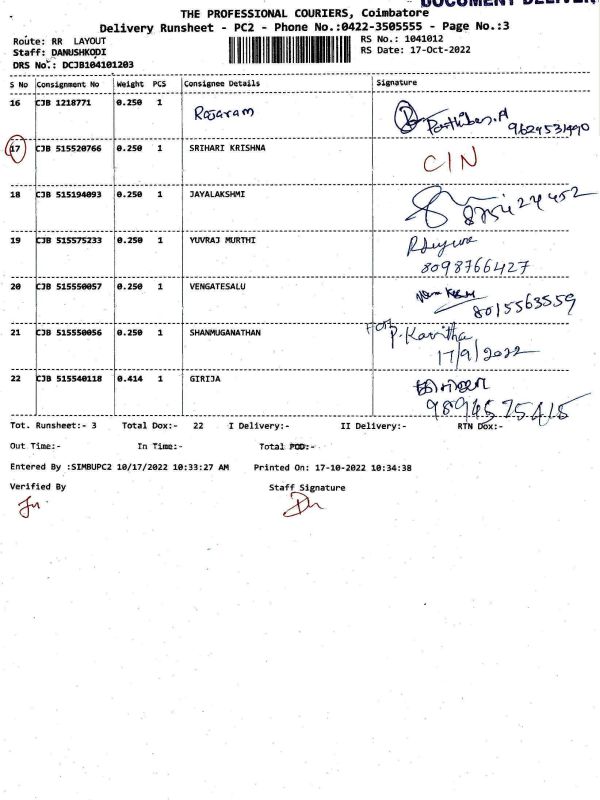 DOCUMENT DELIVER
THE PROFESSIONAL COURIERS, Coimbatore
Delivery Runsheet - PC2 - Phone No.:0422-3505555 - Page No.:3
Route: RR LAYOUT RS No.: 1041012
Staff: DANUSHKODI RS Date: 17-Oct-2022
DRS No.: DCJB104101203
S No Consignment No Weight PCS Consignee Details Signature
16 CJB 1218771 0.250 1 Rajaram Parthiban.A
9629531490
17 CJB 515520766 0.250 1 SRIHARI KRISHNA CIN
18 CJB 515194093 0.250 1 JAYALAKSHMI
19 CJB 515575233 0.250 1 YUVRAJ MURTHI
8098766427
20 CJB 515550057 0.250 1 VENGATESALU
8015563559
21 CJB 515550056 0.250 1 SHANMUGANATHAN For P. Kavitha
17/9/2022
22 CJB 515540118 0.414 1 GIRIJA
Tot. Runsheet:- 3 Total Dox:- 22 I Delivery:- II Delivery:- RTN Dox:-
Out Time:- In Time:- Total POD:-
Entered By :SIMBUPC2 10/17/2022 10:33:27 AM Printed On: 17-10-2022 10:34:38
Verified By Staff Signature